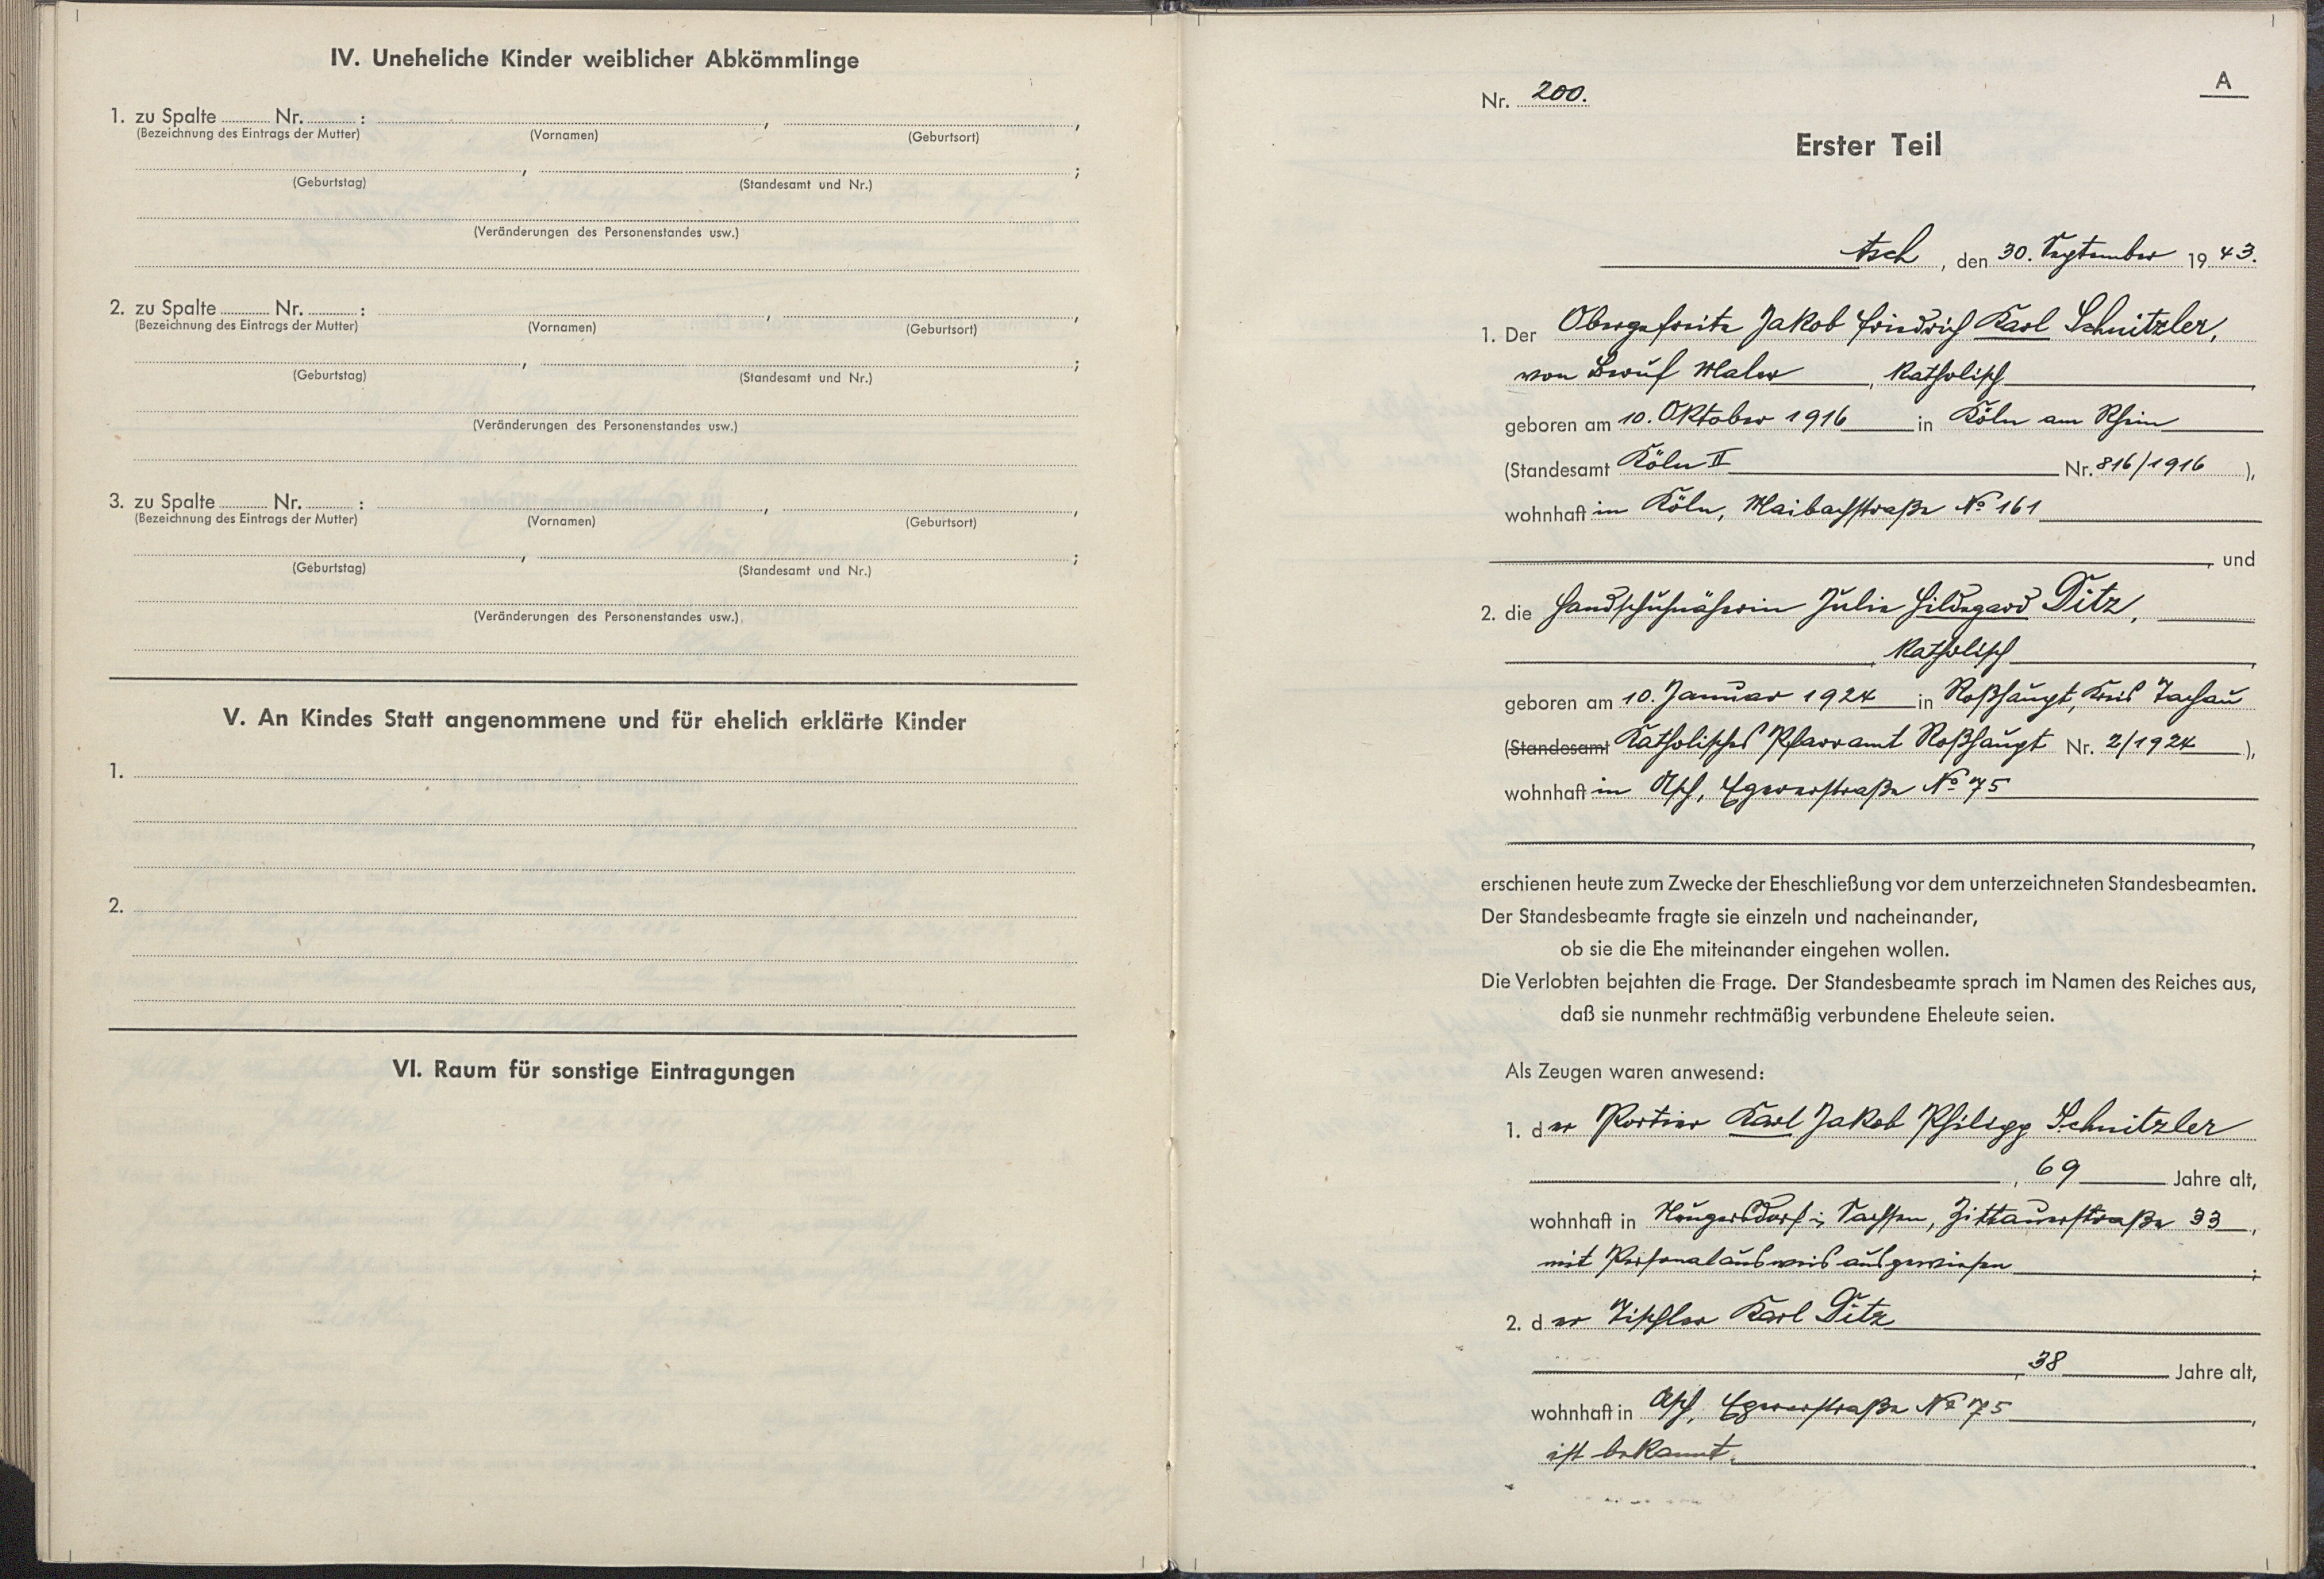 IV. Uneheliche Kinder weiblicher Abkömmlinge
1. zu Spalte Nr. : , ,
(Bezeichnung des Eintrags der Mutter) (Vornamen) (Geburtsort)
, ;
(Geburtstag) (Standesamt und Nr.)
(Veränderungen des Personenstandes usw.)
2. zu Spalte Nr. : , ,
(Bezeichnung des Eintrags der Mutter) (Vornamen) (Geburtsort)
, ;
(Geburtstag) (Standesamt und Nr.)
(Veränderungen des Personenstandes usw.)
3. zu Spalte Nr. : , ,
(Bezeichnung des Eintrags der Mutter) (Vornamen) (Geburtsort)
, ;
(Geburtstag) (Standesamt und Nr.)
(Veränderungen des Personenstandes usw.)
V. An Kindes Statt angenommene und für ehelich erklärte Kinder
1.
2.
VI. Raum für sonstige Eintragungen
A
Nr. 200.
Erster Teil
Asch, den 30. September 1943.
1. Der Obergefreite Jakob Friedrich Karl Schnitzler,
von Beruf Maler, katholisch,
geboren am 10. Oktober 1916 in Köln am Rhein
(Standesamt Köln II Nr. 816/1916),
wohnhaft in Köln, Maibachstraße No 161
, und
2. die Handschuhnäherin Julie Hildegard Ditz,
, katholisch,
geboren am 10. Januar 1924 in Roßhaupt, Kreis Tachau
(Standesamt Katholisches Pfarramt Roßhaupt Nr. 2/1924),
wohnhaft in Asch, Egererstraße No 75
,
erschienen heute zum Zwecke der Eheschließung vor dem unterzeichneten Standesbeamten.
Der Standesbeamte fragte sie einzeln und nacheinander,
ob sie die Ehe miteinander eingehen wollen.
Die Verlobten bejahten die Frage. Der Standesbeamte sprach im Namen des Reiches aus,
daß sie nunmehr rechtmäßig verbundene Eheleute seien.
Als Zeugen waren anwesend:
1. der Portier Karl Jakob Philipp Schnitzler
, 69 Jahre alt,
wohnhaft in Neugersdorf i. Sachsen, Zittauerstraße 33,
mit Personalausweis ausgewiesen;
2. der Tischler Karl Ditz
, 38 Jahre alt,
wohnhaft in Asch, Egererstraße No 75,
ist bekannt.